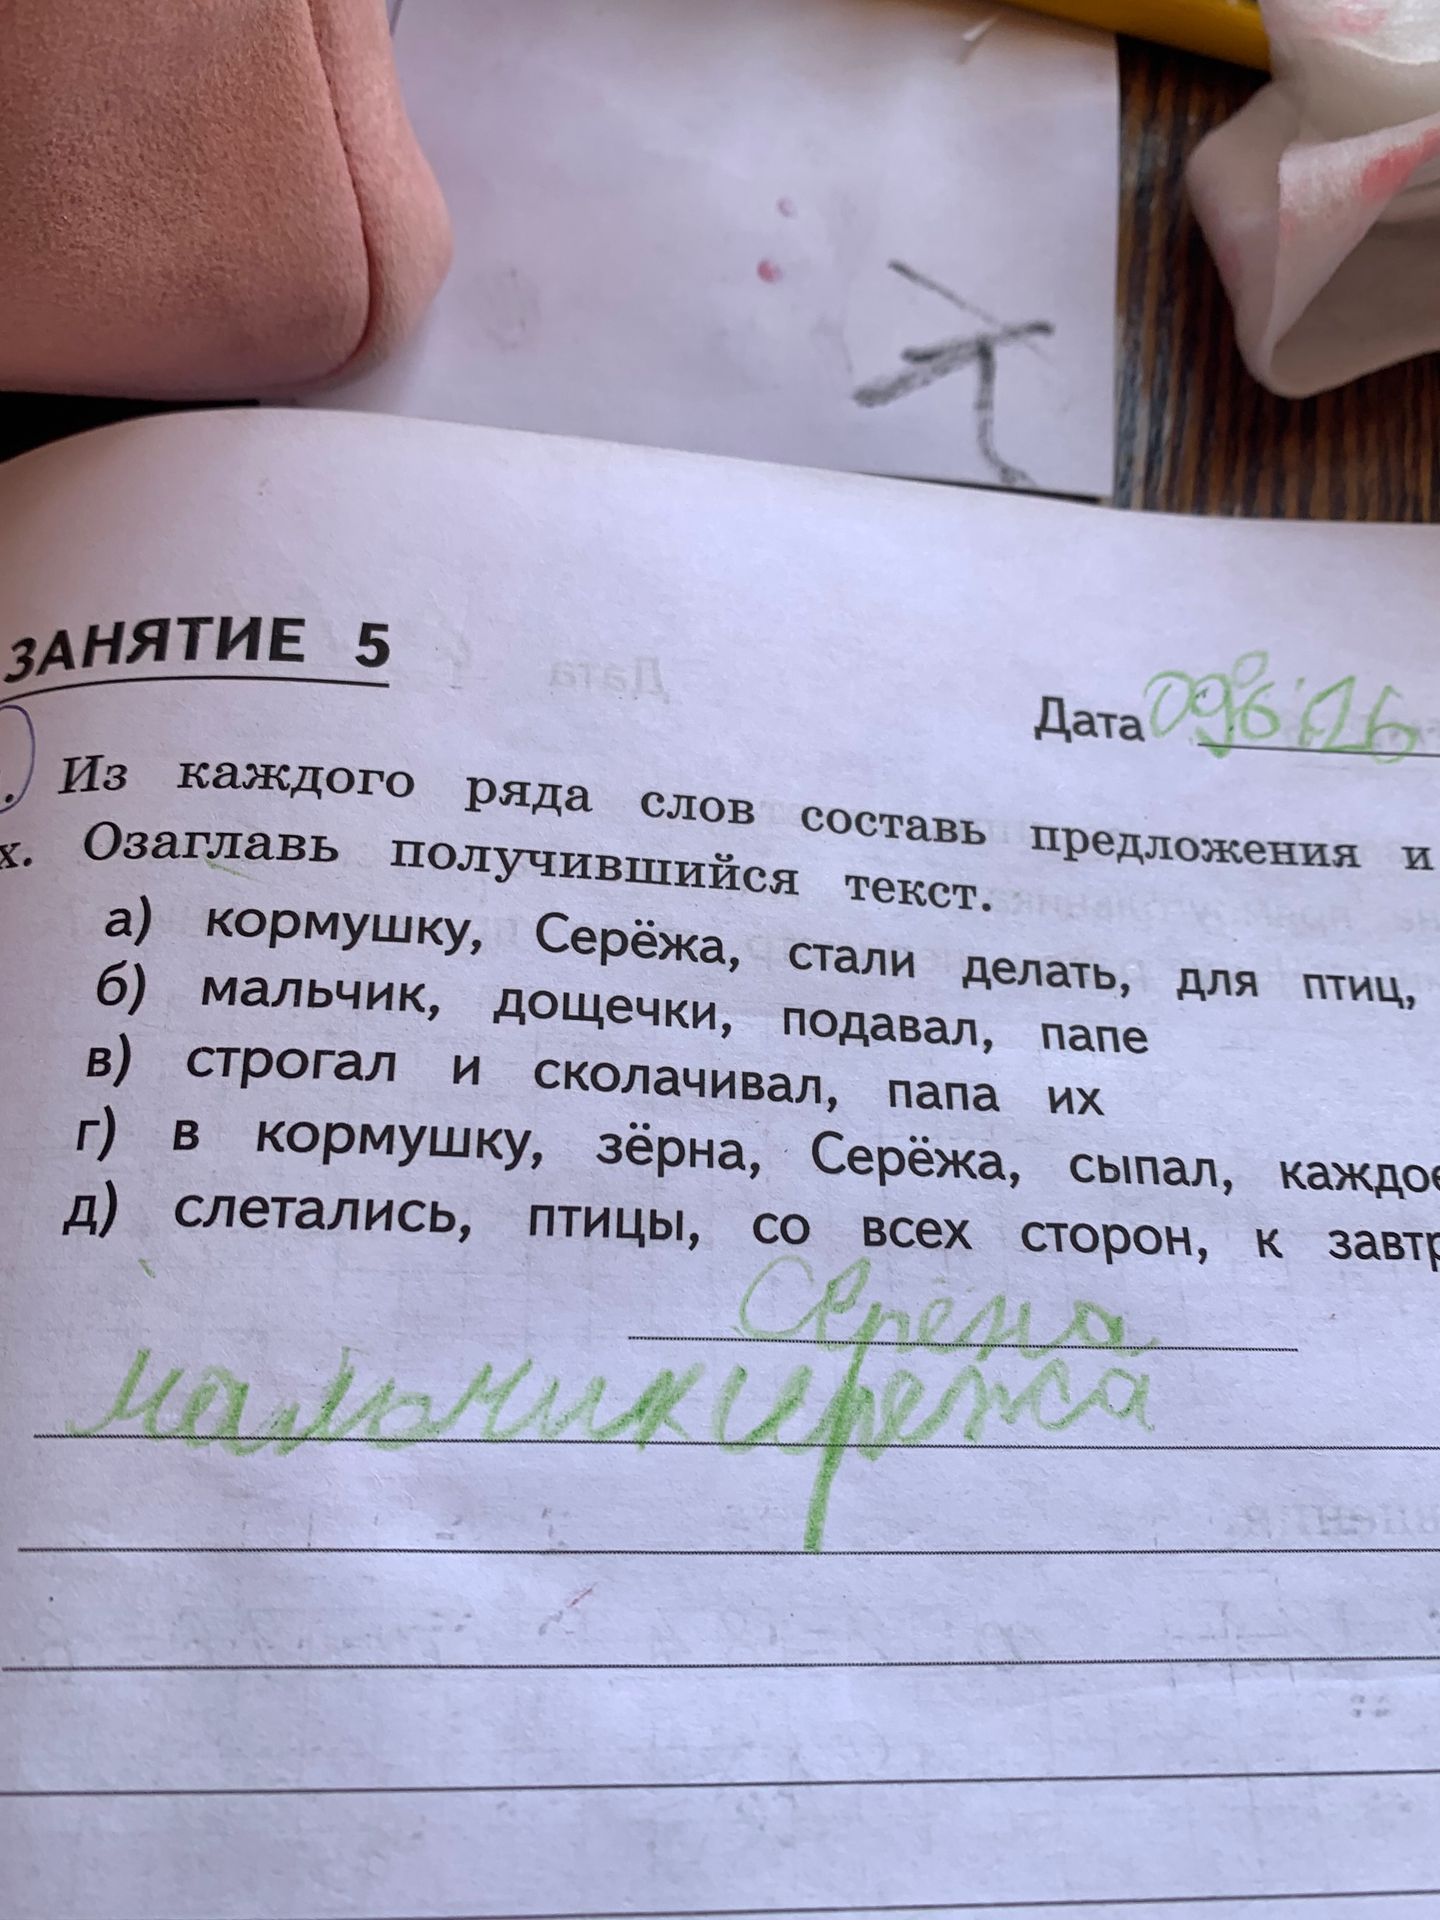 ЗАНЯТИЕ 5
Дата
Из каждого ряда слов составь предложения и
х. Озаглавь получившийся текст.
а) кормушку, Серёжа, стали делать, для птиц,
б) мальчик, дощечки, подавал, папе
в) строгал и сколачивал, папа их
г) в кормушку, зёрна, Серёжа, сыпал, каждое
д) слетались, птицы, со всех сторон, к завтр
мальчик